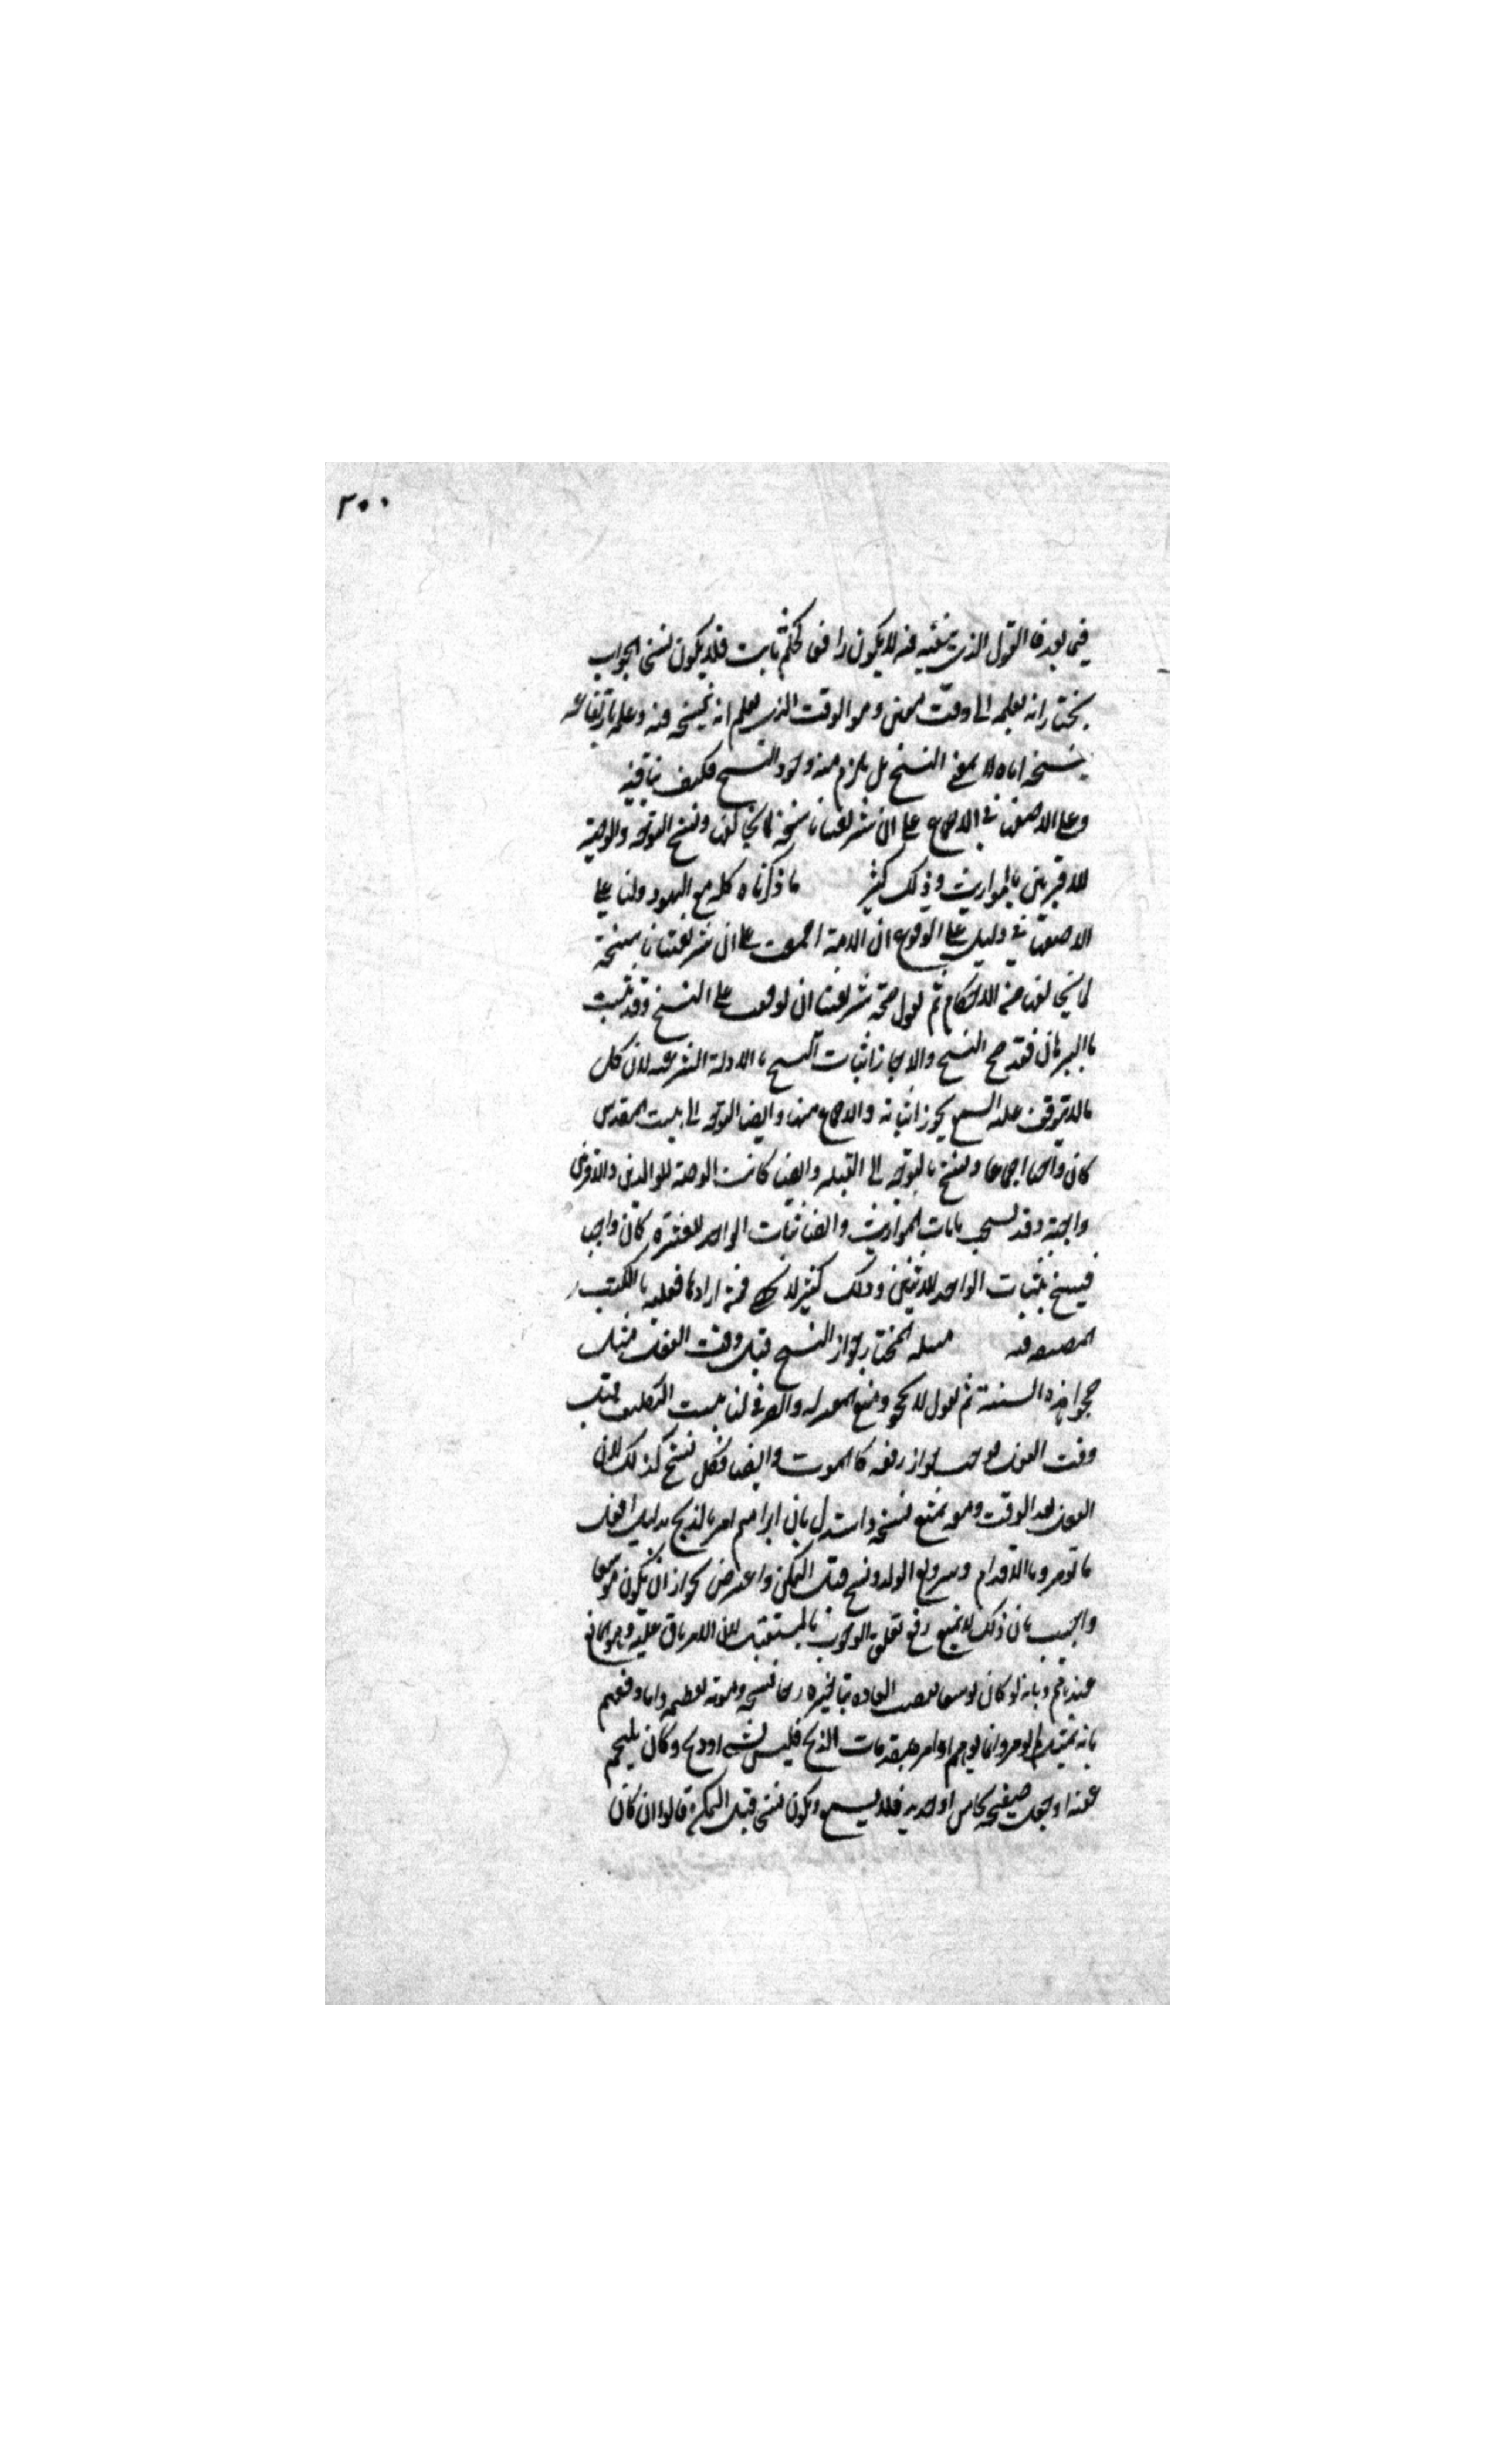 ٢٠٠
فيما بعد فالقول الذي ينفيه فيه لا يكون رافعا لحكم ثابت فلا يكون نسخا الجواب
نختار انه يعلمه الى وقت معين وهو الوقت الذي يعلم انه ينسخه فيه وعلمه بارتفاعه
بنسخه اياه لا يمنع النسخ بل يلزم منه وجود النسخ فكيف ينافيه
وعلى الاصفهاني الاجماع على ان شريعتنا ناسخة لما يخالفها ونسخ التوجه والوصية
للاقربين بالمواريث وذلك كثير ما ذكرناه كله مع اليهود ولنا على
الاصفهاني دليل على الوقوع ان الامة اجمعت على ان شريعتنا ناسخة
لما يخالفها من الاحكام ثم نقول صحة شريعتنا ان توقف على النسخ وقد ثبت
بالبرهان فقد صح النسخ والا جاز اثبات النسخ بالادلة الشرعية لان كل
ما لا يتوقف عليه السمع يجوز اثباته والاجماع منها وايضا التوجه الى بيت المقدس
كان واجبا اجماعا ونسخ بالتوجه الى القبلة وايضا كانت الوصية للوالدين والاقربين
واجبة وقد نسخت بايات المواريث وايضا ثبات الواحد للعشرة كان واجبا
فنسخ بثبات الواحد للاثنين وذلك كثير لا يحصى فمن ارادها فعليه بالكتب
المصنفة فيه مسئلة المختار جواز النسخ قبل وقت الفعل مثل
حجوا هذه السنة ثم نقول لا تحجوا ومنع المعتزلة والصيرفي لنا ثبت التكليف قبل
وقت الفعل فوجب جواز رفعه كالموت وايضا فكل نسخ كذلك لان
الفعل بعد الوقت ومعه يمتنع نسخه واستدل بان ابراهيم امر بالذبح بدليل افعل
ما تؤمر وبالاقدام وترويع الولد ونسخ قبل التمكن واعترض بجواز ان يكون موسعا
واجيب بان ذلك لا يمنع رفع تعلق الوجوب بالمستقبل لان الامر باق عليه وهو المانع
عندهم وبانه لو كان موسعا لقضت العادة بتاخيره رجاء نسخه وموته لعظمه واما دفعهم
بانه لم يؤمر وانما توهم او امر بمقدمات الذبح فليس بشيء او ذبح وكان يلتحم
عقيبه او جعل صفيحة نحاس او حديد فلا يسمع ويكون نسخا قبل التمكن قالوا ان كان